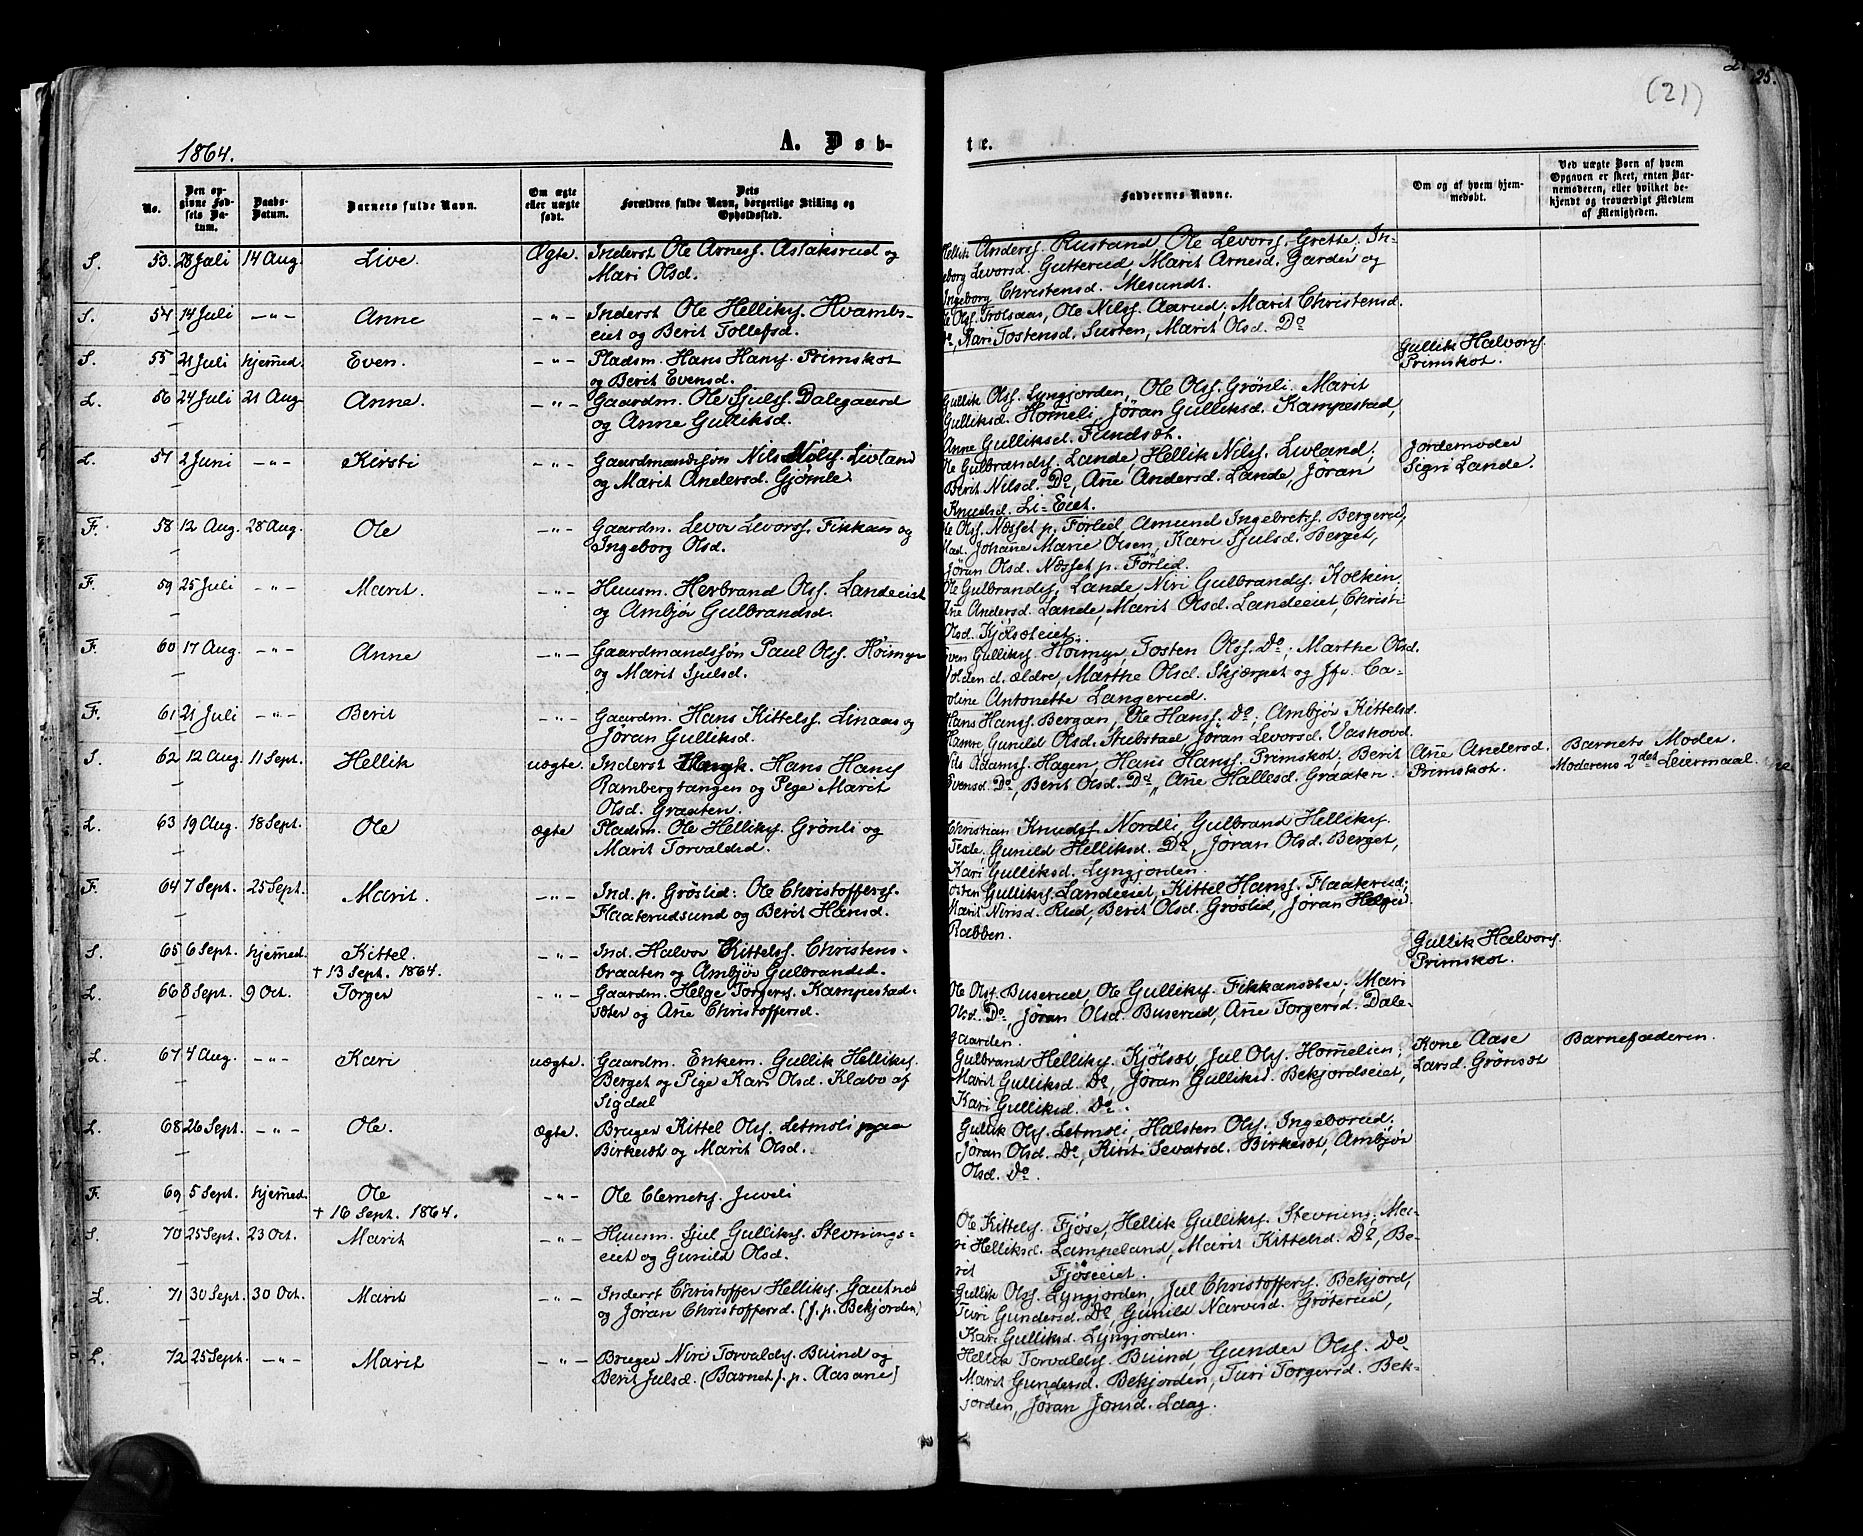 (21)
25.
1864.
A. Døb-
te.
No.
Den op-
givne Fød-
sels Da-
tum.
Daabs-
Datum.
Barnets fulde Navn.
Om ægte
eller uægte
født.
Dets
Forældres fulde Navn, borgerlige Stilling og
Opholdssted.
Faddernes Navne.
Om og af hvem hjem-
medøbt.
Ved uægte Børn af hvem
Opgaven er skeet, enten Bar-
nemoderen, eller hvilket be-
kjendt og troværdigt Medlem
af Menigheden.
S. 53. 28 Juli 14 Aug. Live. Ægte. Inderst Ole Arness. Aslaksrud og
Mari Olsd.
Hellik Anderss. Rustand, Ole Levorss. Grette, In-
eborg Levorsd. Gutterud, Marit Arnesd. Garder og
Ingeborg Christensd. Mesundt.
S. 54 14 Juli -"- Anne -"- Inderst Ole Helliks. Hvambs-
eiet og Berit Tollefsd.
Ole Olss. Trolsaas, Ole Nilss. Aarud, Marit Christensd.
Do, Kari Tostensd. Surten, Marit Olsd. Do
S. 55 21 Juli hjemmed. Even. -"- Pladsm. Hans Hanss. Primskot
og Berit Evensd.
Gullik Halvors.
Primskot.
L. 56 24 Juli 21 Aug. Anne. -"- Gaardm. Ole Sjulss. Dalegaard
og Anne Gulliksd.
Gullik Olss. Lyngjorden, Ole Olss. Grönli, Marit
Gulliksd. Homeli, Jöran Gulliksd. Kampestad,
Anne Gulliksd. Fundsæt.
L. 57 2 Juni -"- Kirsti -"- Gaardmandssön Nils Nilss. Livland
og Marit Andersd. Gjömle.
Ole Gulbrands. Lande, Hellik Nilss. Livland,
Berit Nilsd. Do, Ane Andersd. Lande, Jöran
Knudsd. Li-Eiet.
Jordemoder
Sigri Lande.
F. 58 12 Aug. 28 Aug. Ole -"- Gaardm. Levor Levorss. Fikkan og
Ingeborg Olsd.
Ole Olss. Næsset p. Förlid Amund Ingebretss. Bergerud,
Mad. Johane Marie Olsen, Kari Sjulsd. Berget,
Jöran Olsd. Næsset p. Förlid.
F. 59 25 Juli -"- Marit. -"- Huusm. Herbrand Olss. Landeeiet
og Ambjör Gulbrandsd.
Ole Gulbrands. Lande, Niri Gulbrands. Kolkin,
Ane Andersd. Lande, Marit Olsd. Landeeiet, Christi
Olsd. Kjölsæteiet.
F. 60 17 Aug. -"- Anne -"- Gaardmandssön Paul Olss. Höimyr
og Marit Sjulsd.
Even Gulliks. Höimyr, Tosten Olss. Do, Marthe Olsd.
Volden d. ældre, Marthe Olsd. Skjærpet og Jfr. Ca-
roline Antonette Langerud.
F. 61 21 Juli -"- Berit -"- Gaardm. Hans Kittelss. Linaas og
Jöran Gulliksd.
Hans Hanss. Bergan, Ole Hanss. Do, Ambjör Kittelsd.
Hamre, Gunild Olsd. Stubstad Jöran Levorsd. Vashovd.
S. 62 12 Aug. 11 Sept. Hellik uægte. Inderst Hans Hanss
Rambergtangen og Pige Marit
Olsd. Graaten.
Nils Adamss. Hagen, Hans Hanss. Primskot, Berit
Evensd. Do, Berit Olsd. Do, Ane Hallesd. Graaten.
Ane Andersd.
Primskot.
Barnets Moder.
Moderens 2det Leiermaal.
L. 63 19 Aug. 18 Sept. Ole ægte. Pladsm. Ole Helliks. Grönli og
Marit Torvaldsd.
Christian Knudss. Nordli Gulbrand Helliks.
Gunild Helliksd. Do, Jöran Olsd. Berget,
Kari Gulliksd. Lyngjorden.
F. 64 7 Sept. 25 Sept. Marit. -"- Ind. p. Gröslid: Ole Christoffers.
Flaaterudsund og Berit Hansd.
Tosten Gulliks. Landeeiet, Kittel Hanss. Flaaterud,
Marit Nirisd. Rud, Berit Olsd. Gröslid, Jöran Helges
Rabben.
S. 65 6 Sept. hjemmed. Kittel.
† 13 Sept. 1864. -"- Ind. Halvor Kittelss. Christens-
braaten og Ambjör Gulbrandsd.
Gullik Halvors.
Primskot.
L. 66 8 Sept. 9 Oct. Torger -"- Gaardm. Helge Torgers. Kampestad-
sæter og Ane Christoffersd.
Ole Olss. Buserud, Ole Gulliks. Fikkansæter, Mari
Olsd. Do, Jöran Olsd. Buserud, Ane Torgersd. Dale-
gaarden.
L. 67 4 Aug. -"- Kari uægte. Gaardm. Enkem. Gullik Helliks.
Berget og Pige Kari Olsd. Klabo af
Sigdal
Gulbrand Helliks. Kjölsæt, Jul Ols. Hommelien,
Marit Gulliksd. Do, Jöran Gulliksd. Bekjordseiet,
Kari Gulliksd. Do.
Kone Aase
Larsd. Grönsæt
Barnefaderen.
L. 68 26 Sept. -"- Ole. ægte. Bruger Kittel Olss. Letmoli paa
Birkesæt og Marit Olsd.
Gullik Olss. Letmoli, Halsten Olss. Ingeborud,
Jöran Olsd. Do, Kirst. Sevatsd. Birkesæt, Ambjör
Olsd. Do.
F. 69 5 Sept. hjemmed. Ole
† 16 Sept. 1864. -"- Ole Clemets. Juveli
S. 70 25 Sept. 23 Oct. Marit -"- Huusm. Sjul Gulliks. Stevnings-
eiet og Gunild Olsd.
Ole Kittels. Fjöse, Hellik Gulliks. Stevning, Ma-
ri Helliksd. Lampeland, Marit Kittelsd. Do, Be-
rit Fjöseeiet.
L. 71 30 Sept. 30 Oct. Marit -"- Inderst Christoffer Helliks. Gautneb
og Jöran Christoffersd. (f. p. Bekjorden)
Gullik Olss. Lyngjorden, Jul Christoffers. Bekjord,
Turi Gundersd. Do, Gunild Narvesd. Gröterud,
Kari Gulliksd. Lyngjorden.
L. 72 25 Sept -"- Marit -"- Bruger Niri Torvalds. Buind og
Berit Julsd. (Barnet f. p. Aasane)
Hellik Torvalds. Buind, Gunder Olss. Do
Marit Gundersd. Bekjorden, Turi Torgersd. Bek-
jorden, Jöran Jonsd. Ldag.